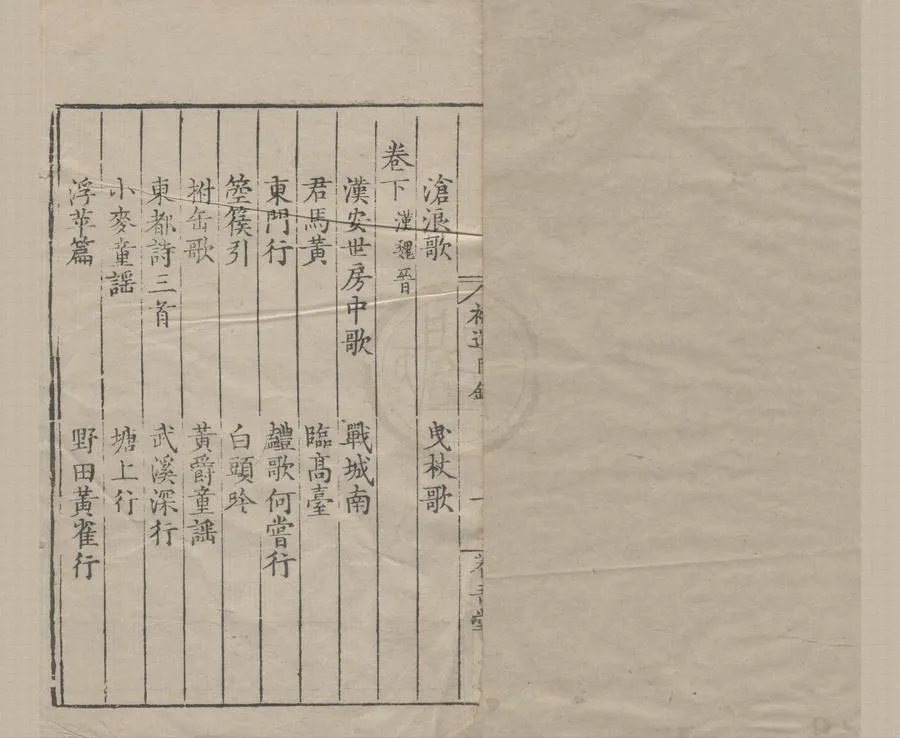 滄浪歌 曳杖歌
卷下 漢魏晉
漢安世房中歌 戰城南
君馬黃 臨高臺
東門行 豔歌何嘗行
箜篌引 白頭吟
拊缶歌 黃爵童謠
東都詩三首 武溪深行
小麥童謠 塘上行
浮苹篇 野田黃雀行